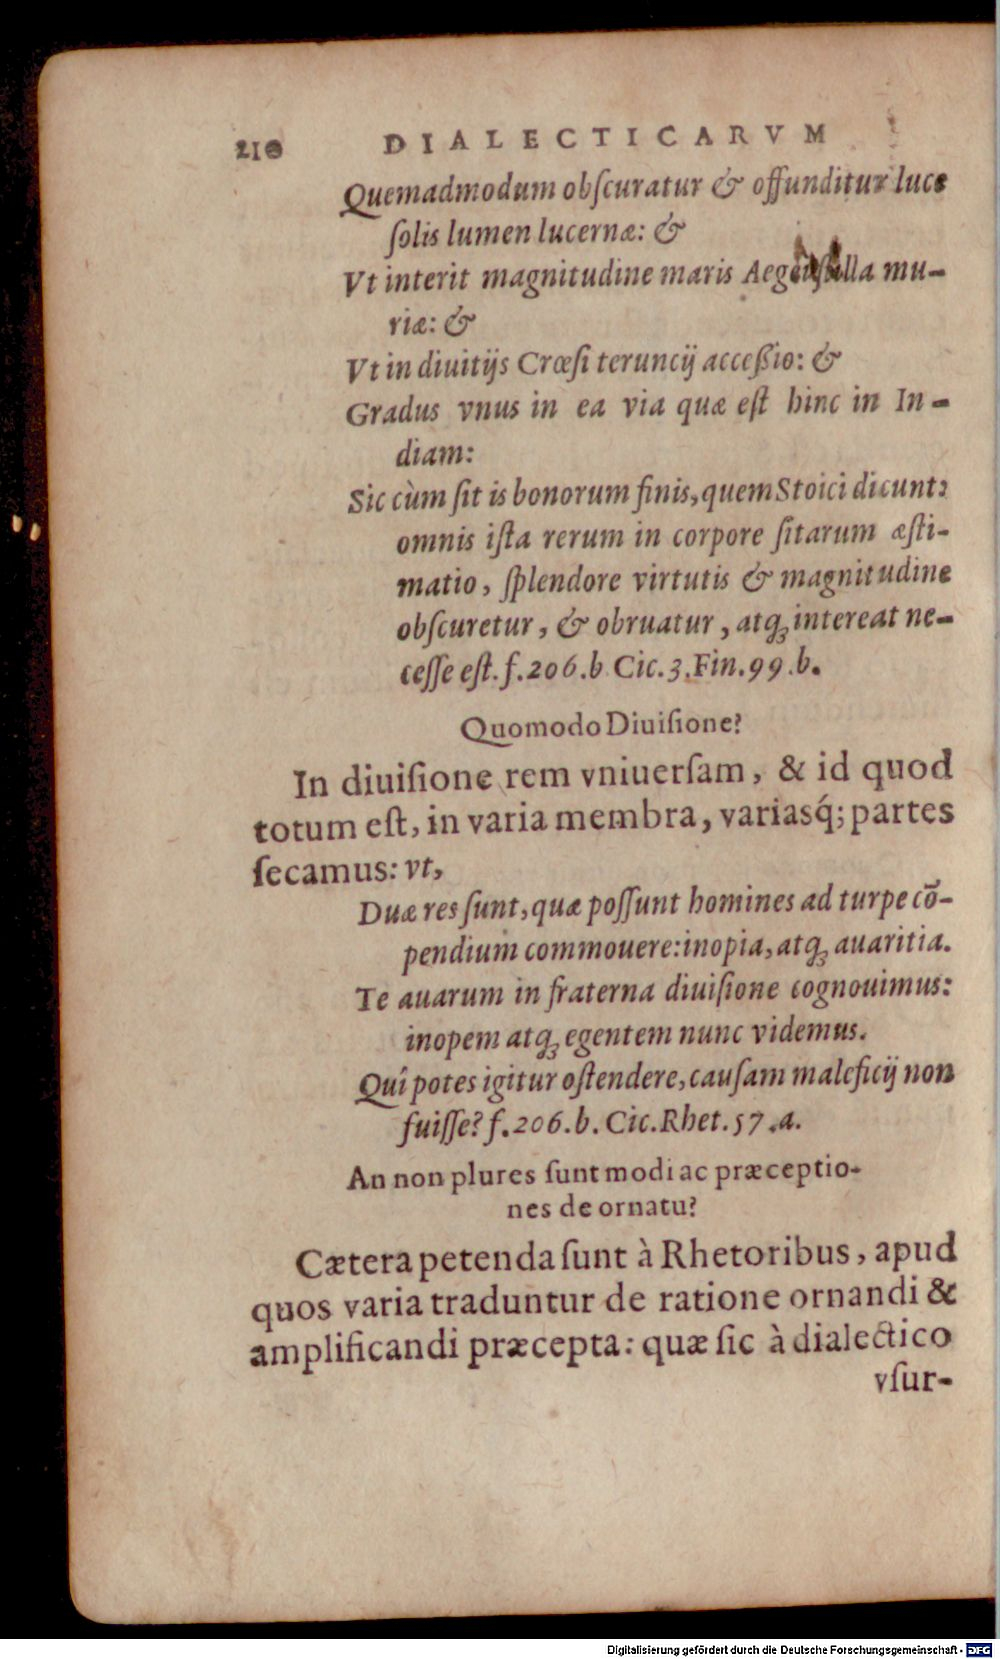 210 DIALECTICARVM
Quemadmodum obſcuratur & offunditur luce
ſolis lumen lucernæ: &
Vt interit magnitudine maris Aegei ſtilla mu-
riæ: &
Vt in diuitijs Crœſi teruncij acceßio: &
Gradus vnus in ea via quæ eſt hinc in In-
diam:
Sic cùm ſit is bonorum finis, quem Stoici dicunt:
omnis iſta rerum in corpore ſitarum æſti-
matio, ſplendore virtutis & magnitudine
obſcuretur, & obruatur, atqꝫ intereat ne-
ceſſe eſt. f. 206. b Cic. 3. Fin. 99. b.
Quomodo Diuiſione?
In diuiſione rem vniuerſam, & id quod
totum eſt, in varia membra, variasq́; partes
ſecamus: vt,
Duæ res ſunt, quæ poſſunt homines ad turpe cō-
pendium commouere: inopia, atqꝫ auaritia.
Te auarum in fraterna diuiſione cognouimus:
inopem atqꝫ egentem nunc videmus.
Quî potes igitur oſtendere, cauſam maleficij non
fuiſſe? f. 206. b. Cic. Rhet. 57. a.
An non plures ſunt modi ac præceptio-
nes de ornatu?
Cætera petenda ſunt à Rhetoribus, apud
quos varia traduntur de ratione ornandi &
amplificandi præcepta: quæ ſic à dialectico
vſur-
Digitalisierung gefördert durch die Deutsche Forschungsgemeinschaft - DFG